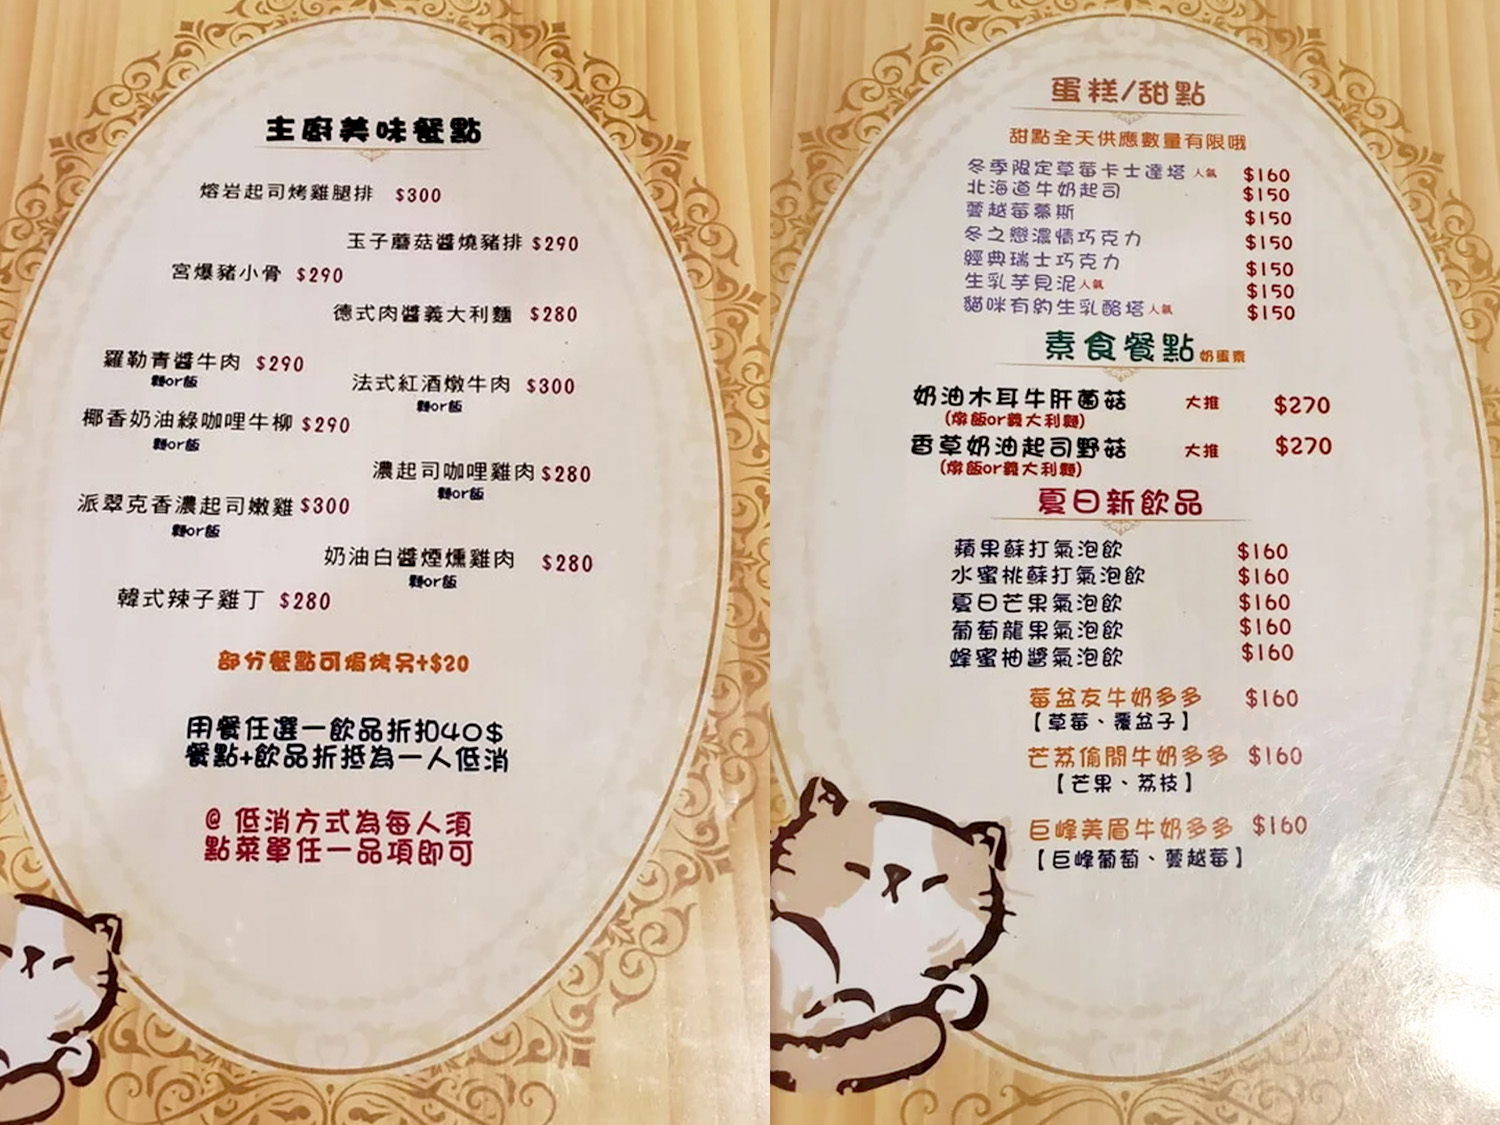 主廚美味餐點
熔岩起司烤雞腿排 $300
玉子蘑菇醬燒豬排 $290
宮爆豬小骨 $290
德式肉醬義大利麵 $280
羅勒青醬牛肉 $290
麵or飯
法式紅酒燉牛肉 $300
麵or飯
椰香奶油綠咖哩牛柳 $290
麵or飯
濃起司咖哩雞肉 $280
麵or飯
派翠克香濃起司嫩雞 $300
麵or飯
奶油白醬煙燻雞肉 $280
麵or飯
韓式辣子雞丁 $280
部分餐點可焗烤另+$20
用餐任選一飲品折扣40$
餐點+飲品折抵為一人低消
@ 低消方式為每人須
點菜單任一品項即可
蛋糕/甜點
甜點全天供應數量有限哦
冬季限定草莓卡士達塔 人氣 $160
北海道牛奶起司 $150
蔓越莓慕斯 $150
冬之戀濃情巧克力 $150
經典瑞士巧克力 $150
生乳芋見泥 人氣 $150
貓咪有約生乳酪塔 人氣 $150
素食餐點 奶蛋素
奶油木耳牛肝菌菇 大推 $270
(燉飯or義大利麵)
香草奶油起司野菇 大推 $270
(燉飯or義大利麵)
夏日新飲品
蘋果蘇打氣泡飲 $160
水蜜桃蘇打氣泡飲 $160
夏日芒果氣泡飲 $160
葡萄龍果氣泡飲 $160
蜂蜜柚醬氣泡飲 $160
莓盆友牛奶多多 $160
【草莓、覆盆子】
芒荔偷閒牛奶多多 $160
【芒果、荔枝】
巨峰美眉牛奶多多 $160
【巨峰葡萄、蔓越莓】